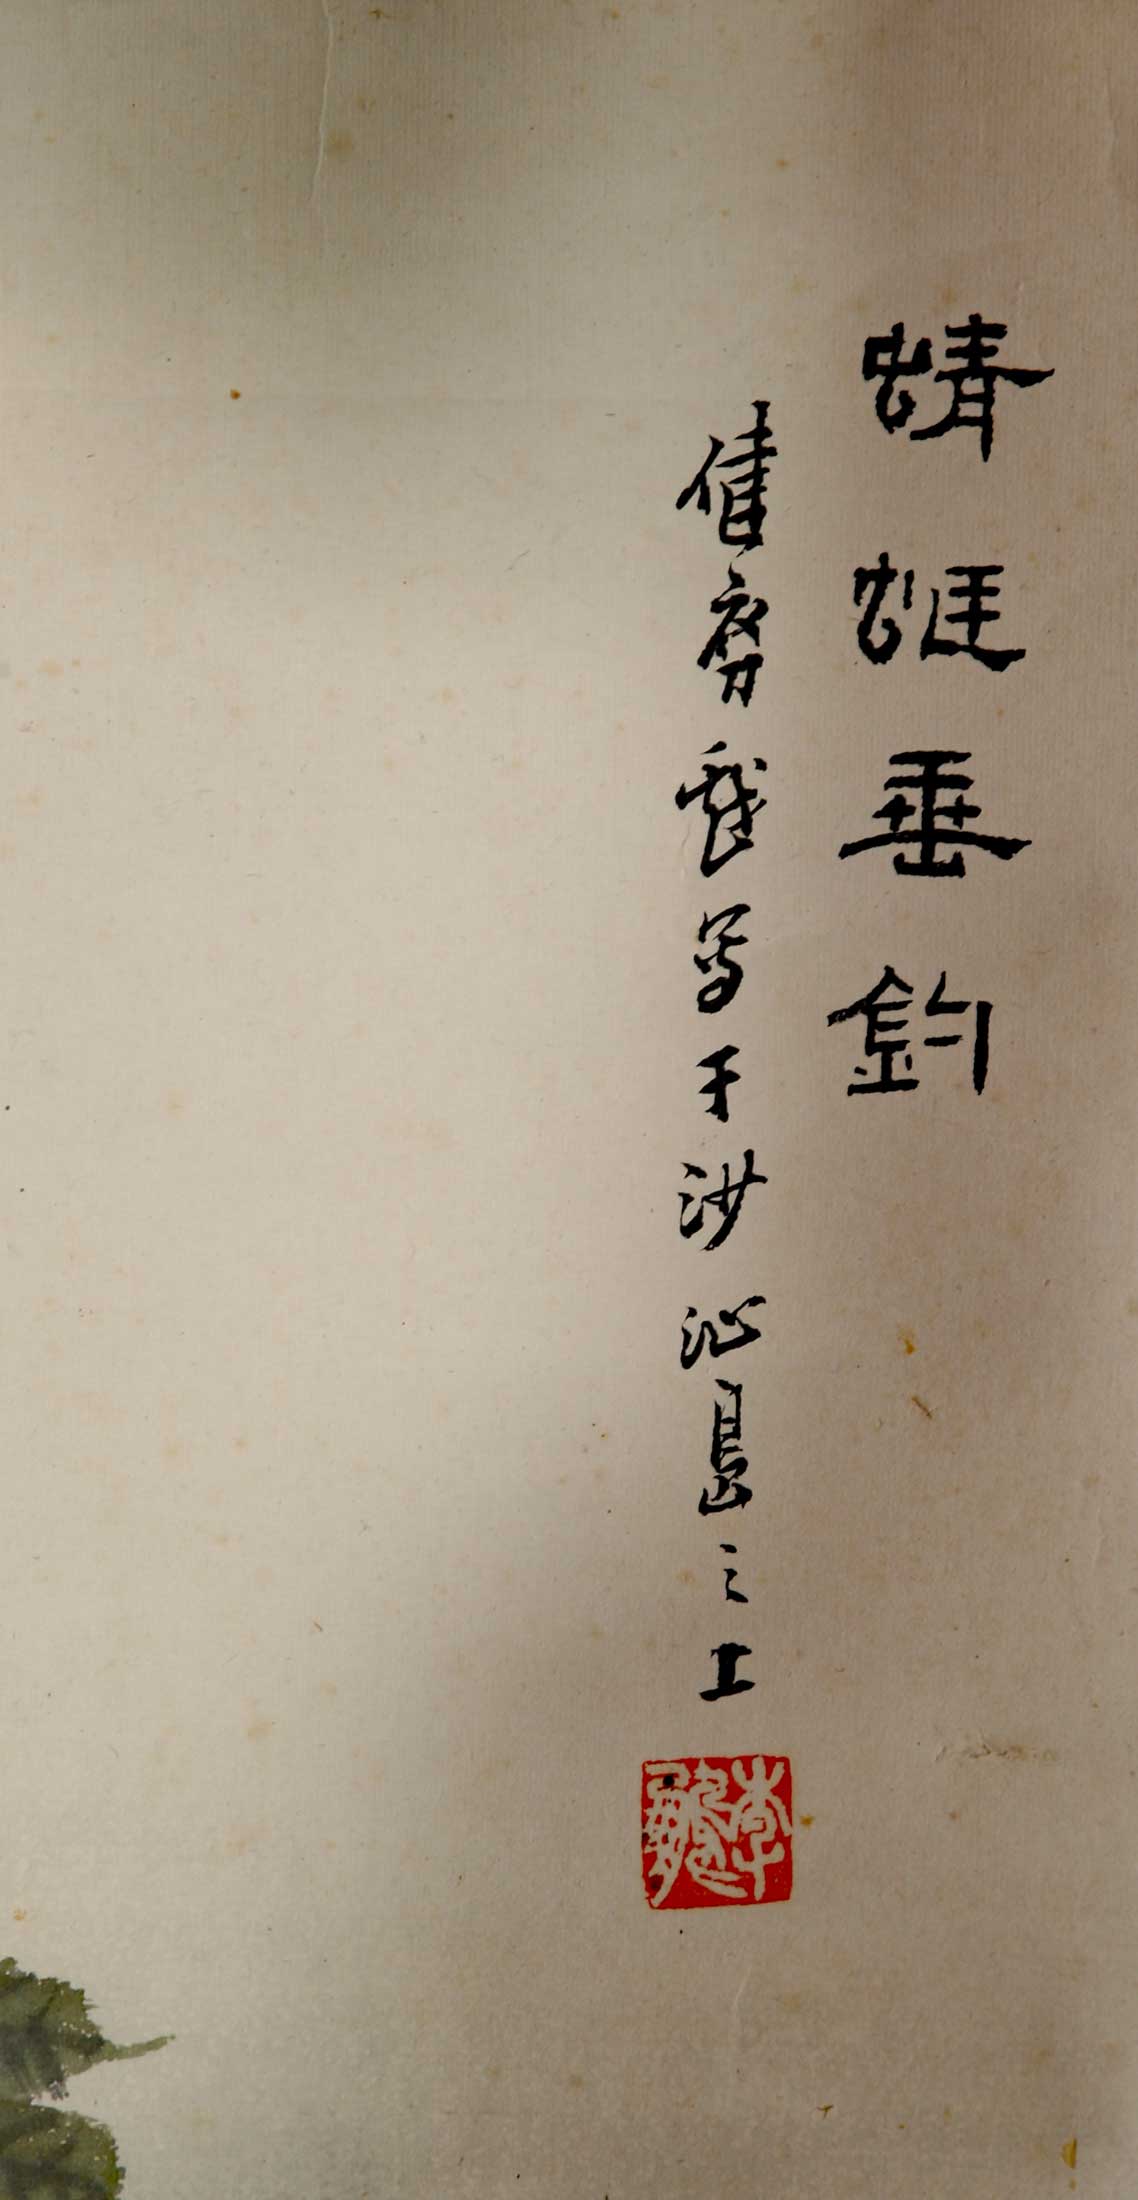 蜻蜓垂釣
齋戲寫于沙沁島之上
李